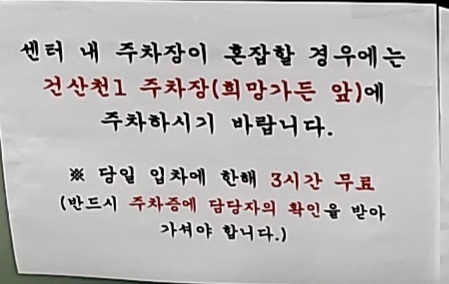 센터 내 주차장이 혼잡할 경우에는
건산천1 주차장(희망가든 앞)에
주차하시기 바랍니다.
※ 당일 입차에 한해 3시간 무료
(반드시 주차증에 담당자의 확인을 받아
가셔야 합니다.)